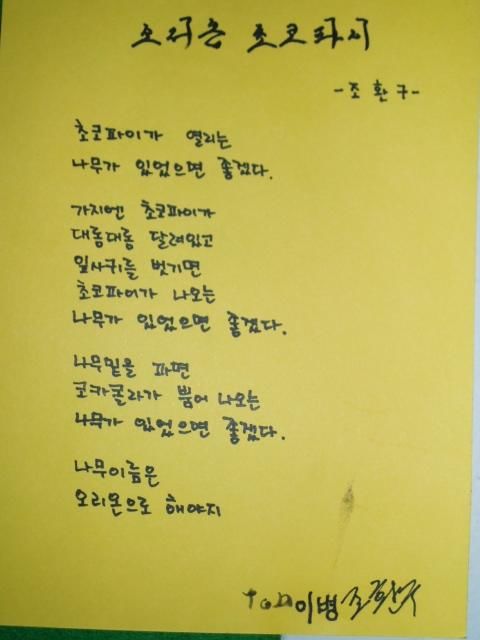 오리온 초코파이
- 조환구 -
초코파이가 열리는
나무가 있었으면 좋겠다.
가지엔 초코파이가
대롱대롱 달려있고
잎사귀를 벗기면
초코파이가 나오는
나무가 있었으면 좋겠다.
나무밑을 파면
코카콜라가 뿜어 나오는
나무가 있었으면 좋겠다.
나무이름은
오리온으로 해야지
이병